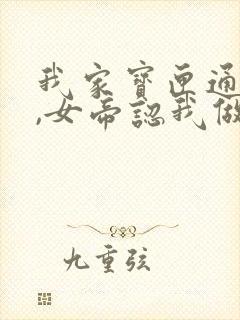 我家寶匣通
,女帝認我做
九重弦